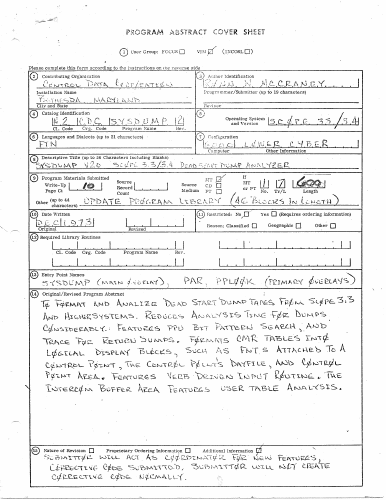 PROGRAM ABSTRACT COVER SHEET
1 User Group: FOCUS VIM (INCORE)
Please complete this form according to the instructions on the reverse side
2 Contributing Organization
CONTROL DATA CORPORATION
Installation Name
BETHESDA, MARYLAND
City and State
3 Author Identification
MCCRANEY
Programmer/Submitter (up to 19 characters)
Reviser
4 Catalog Identification
K2 SYSDUMP
Cl. Code Org. Code Program Name Rev.
5 Operating System and Version
SCOPE 3.3/3.4
6 Languages and Dialects (up to 21 characters)
FTN
7 Configuration
LOWER CYBER
Computer Other Information
8 Descriptive Title (up to 58 Characters including Blanks)
SYSDUMP V2.0 SCOPE 3.3/3.4 DEADSTART DUMP ANALYZER
9 Program Materials Submitted
Write-Up 10 Page Ct
Source Record Count
Source Medium MT CD PT
If MT or PT No. Tr/L 600 Length
Other (up to 44 characters) UPDATE PROGRAM LIBRARY (46 BLOCKS IN LENGTH)
10 Date Written
DEC 1973
Original Revised
11 Restricted: No Yes (Requires ordering information)
Reason: Classified Geographic Other
12 Required Library Routines
Cl. Code Org. Code Program Name
13 Entry Point Names
SYSDUMP (MAIN OVERLAY), PAR, PPLOOK (PRIMARY OVERLAYS)
14 Original/Revised Program Abstract
TO FORMAT AND ANALIZE DEAD START DUMP TAPES FROM SCOPE 3.3
AND HIGHER SYSTEMS. REDUCES ANALYSIS TIME FOR DUMPS
CONSIDERABLY. FEATURES PPU BIT PATTERN SEARCH, AND
TRACE FOR RETURN DUMPS. FORMATS CMR TABLES INTO
LOGICAL DISPLAY BLOCKS, SUCH AS FNT'S ATTACHED TO A
CONTROL POINT, THE CONTROL POINT'S DAYFILE, AND CONTROL
POINT AREA. FEATURES VERB DRIVEN INPUT ROUTINE. THE
INTERCOM BUFFER AREA FEATURES USER TABLE ANALYSIS.
15 Nature of Revision Proprietary Ordering Information Additional Information
SUBMITTOR WILL ACT AS COORDINATOR FOR NEW FEATURES,
CORRECTIVE CODE SUBMITTED. SUBMITTOR WILL NOT CREATE
CORRECTIVE CODE NORMALLY.